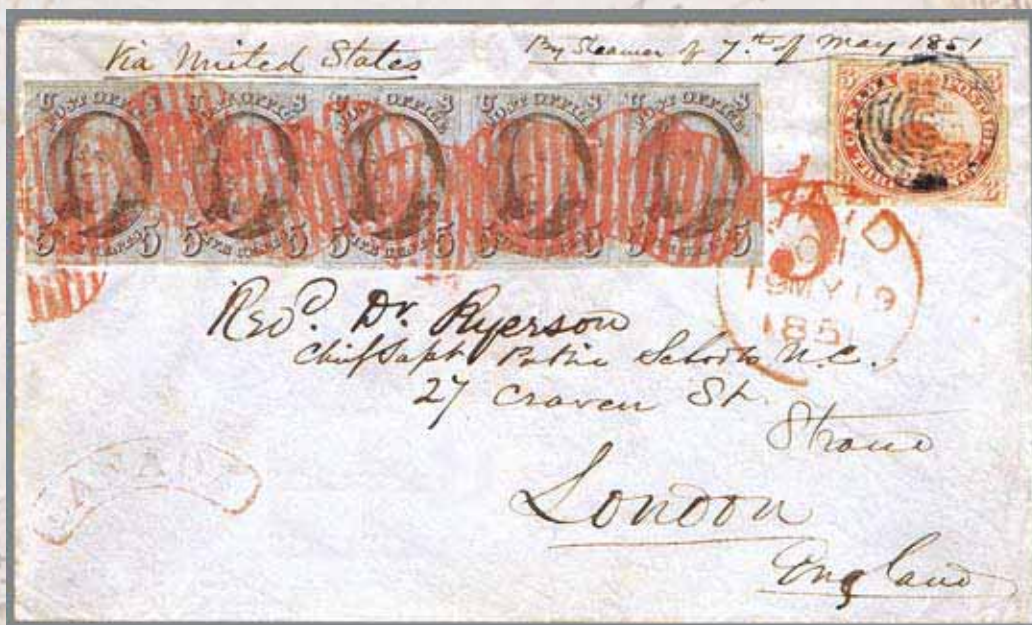 Via United States
By Steamer of 7.th of May 1851
U S
POST OFFICE
5 FIVE CENTS 5
U S
POST OFFICE
5 FIVE CENTS 5
U S
POST OFFICE
5 FIVE CENTS 5
U S
POST OFFICE
5 FIVE CENTS 5
U S
POST OFFICE
5 FIVE CENTS 5
3 CANADA POSTAGE 3
PAID
19 MY 19
1851
Revd. Dr. Ryerson
Chief Supt Public Schools U.C.
27 Craven St.
Strand
London
England
CANADA